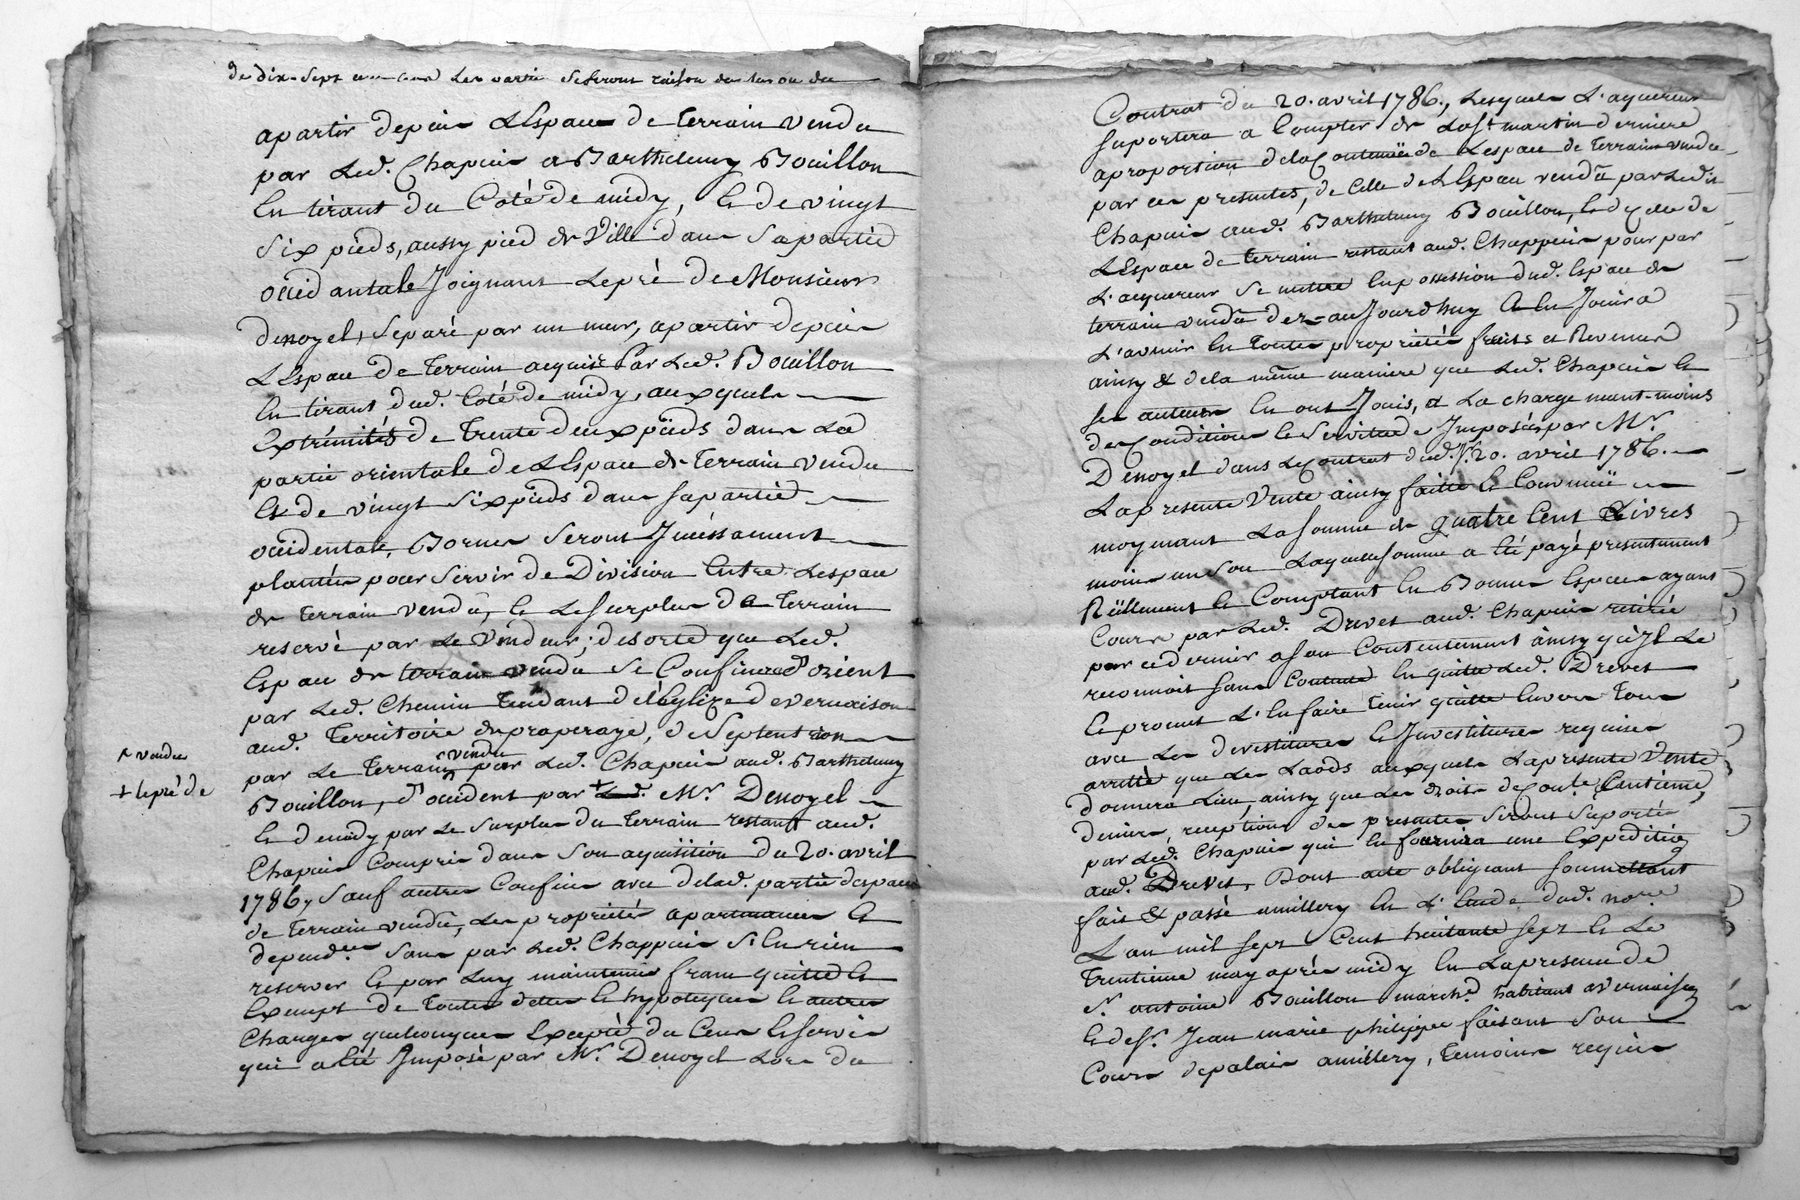 de dix-sept les partie seferont raison du plus ou du
apartir depuis LEspace de terrain vendu
par Led. Chapuis a Barthelemy Bouillon
En tirant du Coté de midy, Et de vingt
six pieds, aussy pied de Ville dans sapartie
occidantale Joignant Lepré de Monsieur
denoyel, separé par un mur, apartir depuis
LEspace de terrain acquis Par Led. Bouillon
En tirant dud. Coté de midy, auxquels
Extrémités de trente deux piëds dans La
partie orientale de LEspace de terrain vendu
Et de vingt six pieds dans sapartie
occidentale, Bornes seront Jncéssament
plantés pour servir de Division Entre Lespace
de terrain vendu, Et Lesurplus de terrain
reservé par Le vendeur; desorte que Led.
Espace de terrain vendu se Confine d'orient
par Led. Chemin tendant deléglize devernaison
aud. Territoire duproperaye, de septentrion
^ vendu
par Le Terrain vendu par Led. Chapuis aud. Barthelemy
+ lepré de
Bouillon, d'occident par + Led. Mr. Denoyel
Et demidy par Le surplus du terrain restant aud.
Chapuis Compris dans son aquisition du 20. avril
1786, sauf autres Confins avec delad. partie despace
de terrain vendu, Les propriétés apartenances Et
depend.ces sans par Led. Chappuis s'En rien
reserver Et par Luy maintenus franc quitte Et
Exempt de toutes dettes Et hypoteques Et autres
Charges quelconques Excepté du Cens Et servis
qui a Eté Jmposé par Mr. Denoyel Lors du
Contrat du 20. avril 1786., Lesquels L'aquereur
suportera a Compter de La St. martin derniere
aproportion delaContenüe de Lespace de terrain vendu
par ces presentes, de Celle de LEspace vendu par Ledit
Chapuis aud. Barthelemy Bouillon, Et de Celle de
LEspace de terrain restant aud. Chappuis pour par
L'aequereur se mettre Enpossession dud. Espace de
terrain vendu dez-aujourdhuy Et En Jouir a
L'avenir En toutes propriétés fruits et Revenus
ainsy & dela même maniere que Led. Chapuis Et
ses auteurs En ont Joüis, a La charge neant-moins
des Conditions Et Servitudes Jmposées par Mr.
Denoyel dans LeContrat dud. J. 20. avril 1786.
Lapresente Vente ainsy faitte Et Convenüe
moyenant La somme de quatre Cent Livres
moins un sou Laquelle somme a Eté payé presentement
Réellement Et Comptant En Bonnes Especes ayant
Cours par Led. Drevet aud. Chapuis retirée
par cedernier ason Contentement ainsy qu'Jl Le
reconnoit sans Contrainte En quitte Led. Drevet
Et promet L'En faire tenir quitte Envers Tous
avec Les devestitures Et Jnvestitures requises
arretté que Les Laods auxquels Lapresente Vente
donnera Lieu, ainsy que Les droits de Conte Centieme
denier, reception des presentes seront suportés
par Led. Chapuis qui En fournira une Expedition
aud. Drevet, Dont acte obligeant soumettant
fait & passé amillery En L'Etude dud. no.re
L'an mil sept Cent huitante sept Et Le
trentieme may aprés midy En Lapresence de
Sr. antoine Bouillon march.d habitant avernaison
Et de Sr. Jean marie philippe faisant son
Cours depalais amillery, temoins requis